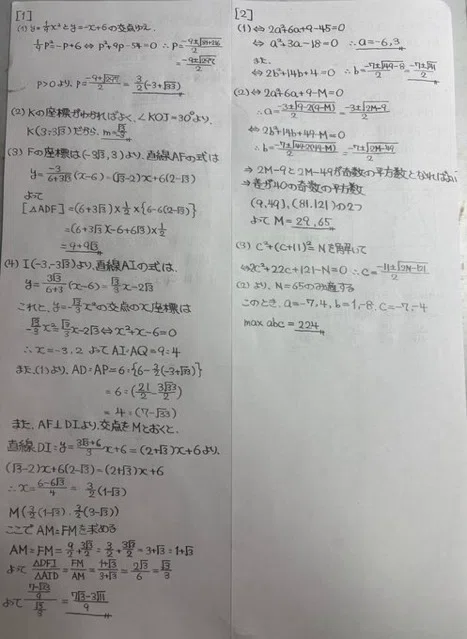 [1]
(1) y=1/9x²とy=-x+6の交点ゆえ、
1/9p²=-p+6 ⇔ p²+9p-54=0 ∴ p=(-9±√(81+216))/2
=(-9±√297)/2
p>0より、p=(-9+√297)/2=3/2(-3+√33)
(2) Kの座標がわかればよく、∠KOJ=30°より、
K(3,-√3)だから、m=√3/3
(3) Fの座標は(-3√3,3)より、直線AFの式は
y=-3/(6+3√3)(x-6)=(√3-2)x+6(2-√3)
よって
[△ADF]=(6+3√3)×1/2×{6-6(2-√3)}
=(6+3√3)(-6+6√3)×1/2
=9+9√3
(4) I(-3,-3√3)より、直線AIの式は、
y=3√3/(6+3)(x-6)=√3/3x-2√3
これと、y=-√3/3x²の交点のx座標は
-√3/3x²=√3/3x-2√3⇔x²+x-6=0
∴x=-3,2 よってAI:AQ=9:4
また、(1)より、AD:AP=6:{6-3/2(-3+√33)}
=6:(21/2-3√33/2)
=4:(7-√33)
また、AF⊥DIより、交点をMとおくと、
直線DI:y=(3√3+6)/3x+6=(2+√3)x+6より、
(√3-2)x+6(2-√3)=(2+√3)x+6
∴x=(6-6√3)/4=3/2(1-√3)
M(3/2(1-√3), 3/2(3-√3))
ここでAM:FMを求める
AM:FM=9/2+3√3/2:3/2+3√3/2=3+√3:1+√3
よって △DFI/△AID=FM/AM=(1+√3)/(3+√3)=2√3/6=√3/3
よって ((7-√33)/9)/(√3/3)=(7√3-3√11)/9
[2]
(1)⇔2a²+6a+9-45=0
⇔a²+3a-18=0 ∴a=-6,3
また、
⇔2b²+14b+4=0 ∴b=(-7±√(49-8))/2=(-7±√41)/2
(2)⇔2a²+6a+9-M=0
∴a=(-3±√(9-2(9-M)))/2=(-3±√(2M-9))/2
⇔2b²+14b+49-M=0
∴b=(-7±√(49-2(49-M)))/2=(-7±√(2M-49))/2
⇒2M-9と2M-49が奇数の平方数となればよい
⇒差が40の奇数の平方数
(9,49),(81,121)の2つ
よってM=29,65
(3) c²+(c+11)²=Nを同解いて
⇔2c²+22c+121-N=0 ∴c=(-11±√(2N-121))/2
(2)より、N=65のみ適する
このとき、a=-7,4, b=1,-8, c=-7,-4
max abc=224